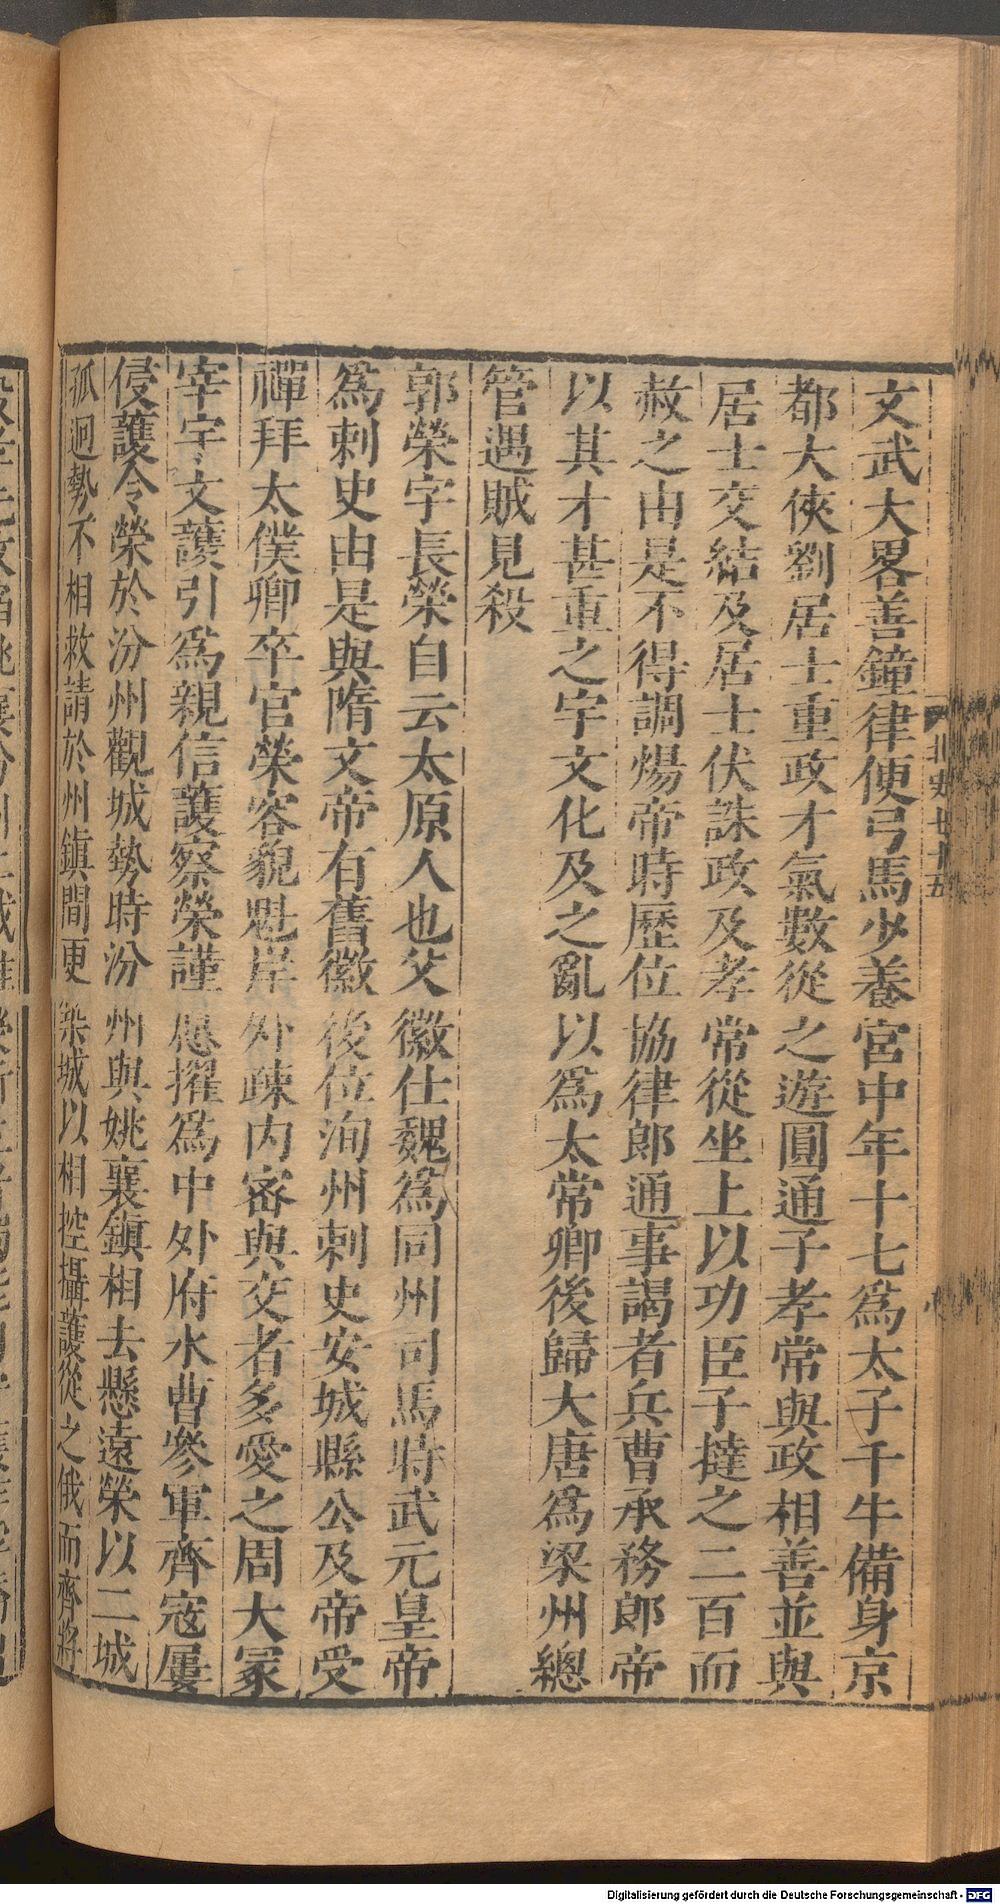 文武大畧善鐘律便弓馬少養宮中年十七爲太子千牛備身京
都大俠劉居士重政才氣數從之遊圓通子孝常與政相善並與
居士交結及居士伏誅政及孝常從坐上以功臣子撻之二百而
赦之由是不得調煬帝時歷位協律郎通事謁者兵曹承務郎帝
以其才甚重之宇文化及之亂以爲太常卿後歸大唐爲梁州總
管遇賊見殺
郭榮字長榮自云太原人也父徽仕魏爲同州司馬時武元皇帝
爲刺史由是與隋文帝有舊徽後位洵州刺史安城縣公及帝受
禪拜太僕卿卒官榮容貌魁岸外疎内密與交者多愛之周大冢
宰宇文護引爲親信護察榮謹愿擢爲中外府水曹參軍齊寇屢
侵護令榮於汾州觀城勢時汾州與姚襄鎮相去懸遠榮以二城
孤迥勢不相救請於州鎮間更築城以相控攝護從之俄而齊將
北史七十五
Digitalisierung gefördert durch die Deutsche Forschungsgemeinschaft - DFG